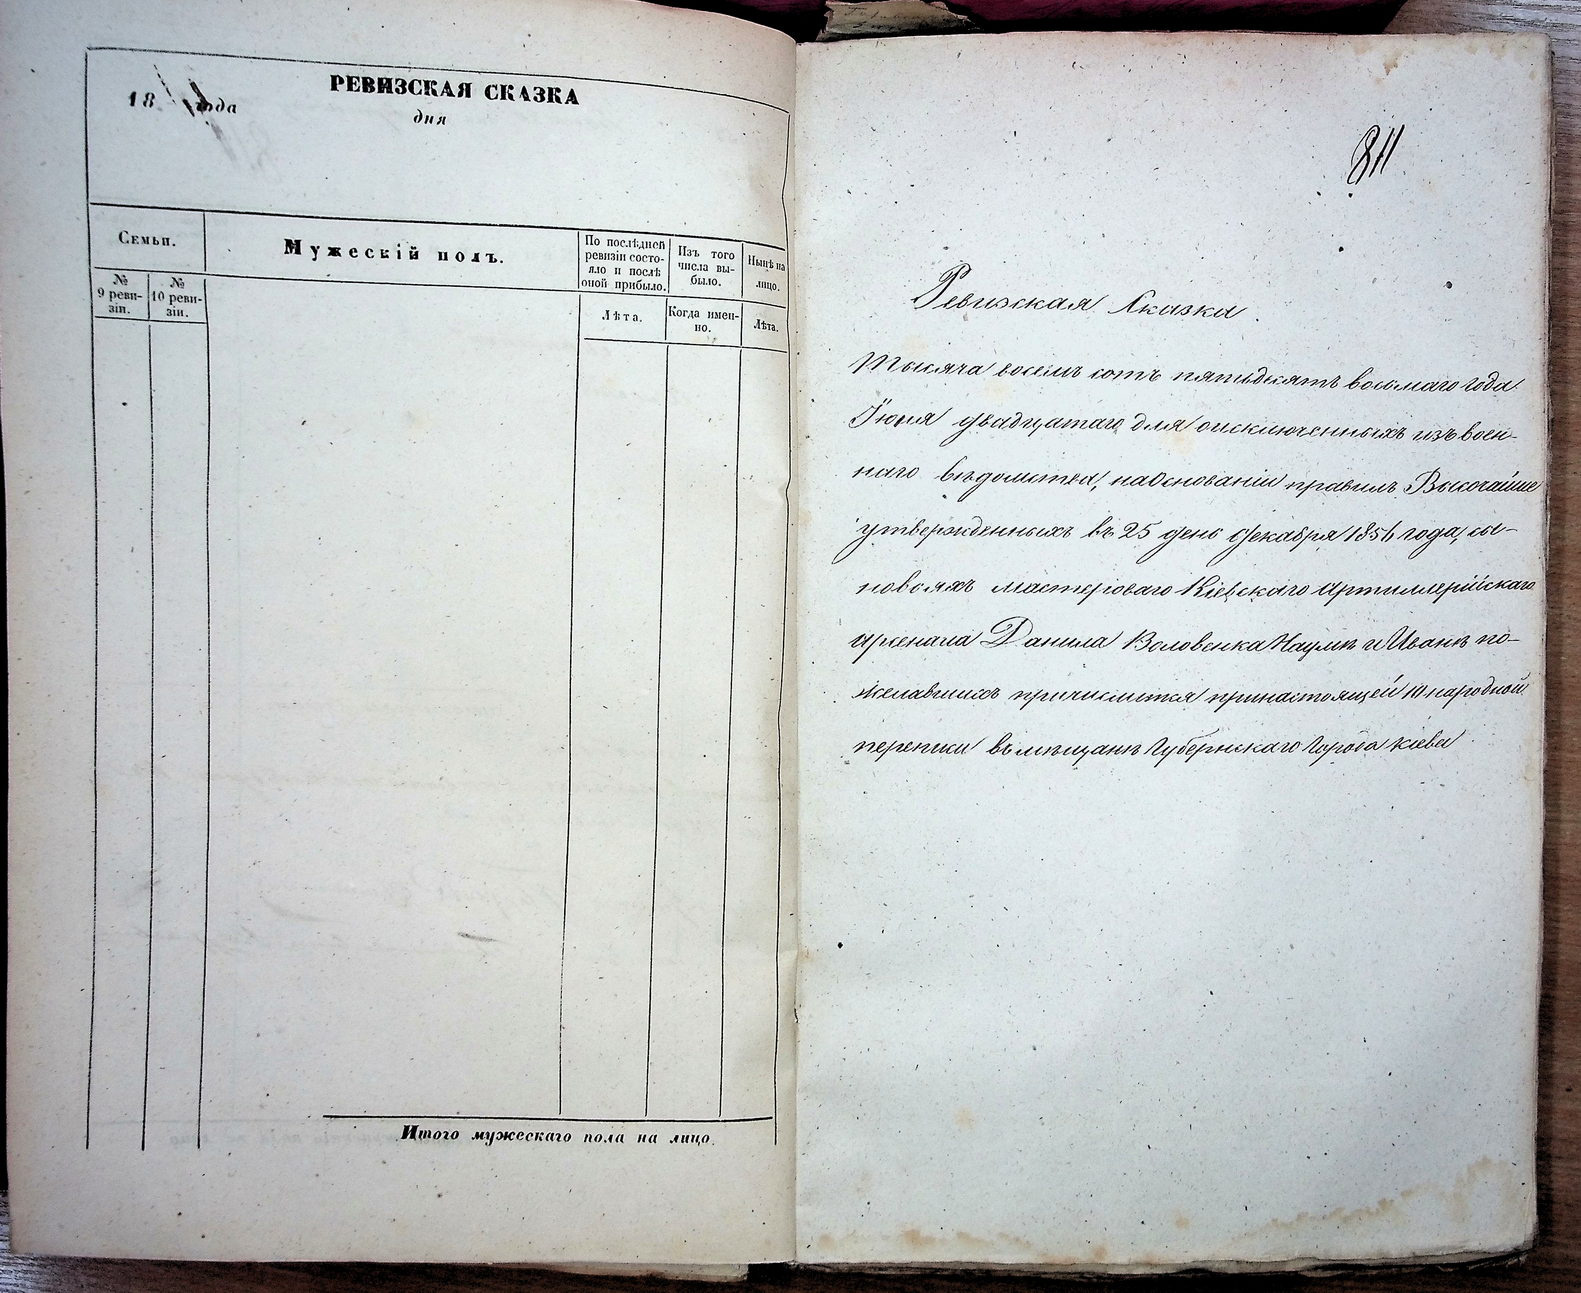 РЕВИЗСКАЯ СКАЗКА
18 года
дня
Семьи.
Мужескій полъ.
По послѣдней
ревизіи состо-
яло и послѣ
оной прибыло.
Изъ того
числа вы-
было.
Нынѣ на
лицо.
№
9 реви-
зіи.
№
10 реви-
зіи.
Лѣта.
Когда имен-
но.
Лѣта.
Итого мужескаго пола на лицо.
811
Ревизская Сказка
Тысяча восемь сотъ пятьдесятъ восьмаго года
Іюня двадцатаго дня о исключенныхъ изъ воен-
наго вѣдомства, на основаніи правилъ Высочайше
утвержденныхъ въ 25 день Декабря 1856 года, сы-
новьяхъ мастероваго Кіевскаго Артиллерійскаго
арсенала Данила Воловенка Наумѣ и Иванѣ по-
желавшихъ причислится при настоящей 10 народной
переписи въ мѣщанѣ Губернскаго Города Кіева